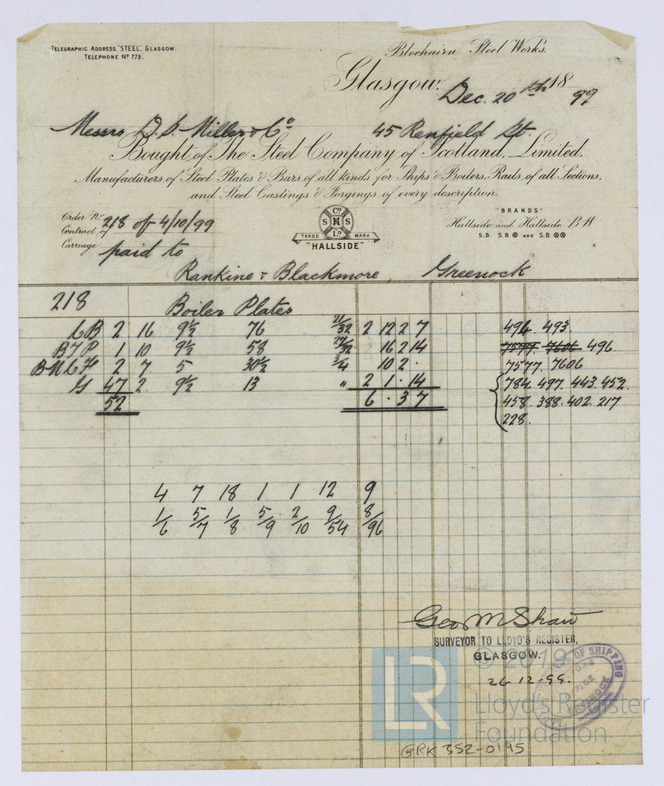 TELEGRAPHIC ADDRESS "STEEL", GLASGOW.
TELEPHONE Nº 773.
Blochairn Steel Works.
Glasgow, Dec. 20th 1899
Messrs D. S. Miller & Co 45 Renfield St
Bought of The Steel Company of Scotland, Limited,
Manufacturers of Steel Plates & Bars of all kinds for Ships & Boilers, Rails of all Sections,
and Steel Castings & Forgings of every description.
Order Nº
Contract 218 of 4/10/99
Carriage paid to
Co S H S Ld
TRADE MARK
"HALLSIDE"
"BRANDS"
Hallside and Hallside B.W.
S.B. S.B. AND S.B.
Rankine & Blackmore, Greenock
218 Boiler Plates
CB 2 16 9½ 76 21/32 2 12 2 7 494. 493.
1 10 9½ 58 16 2 14 7577 7606 496
2 7 5 30½ 3/4 10 2 · 7577 7606
G 47 2 9½ 13 " 2 1 · 14 784. 497. 443. 452
52 6 · 3 7 458. 388. 402. 217
228
4 7 18 1 1 12 9
1/6 5/7 1/8 5/9 2/10 9/54 8/96
Geo M Shaw
SURVEYOR TO LLOYD'S REGISTER,
GLASGOW.
26-12-99.
OF SHIPPING
© 2019
LR Lloyd's Register
Foundation
GRK 352-0145